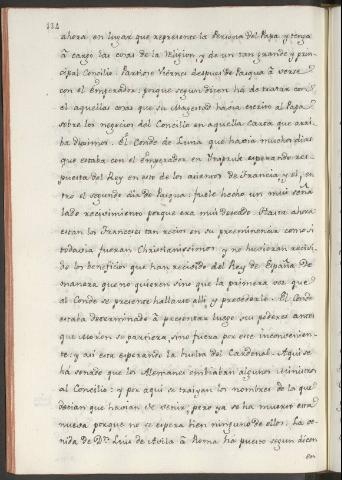 132
ahora, en lugar que represente la Persona del Papa y tenga
à cargo las cosas de la Religion, y de un tan grande y prin-
cipal Concilio. Partiose Viernes despues de Pasqua à verse
con el emperador: porque segun dicen hà de tratar con
el aquellas cosas que su Magestad havia escrito al Papa
sobre los negocios del Concilio en aquella carta que arri-
ba diximos. El Conde de Luna que havia muchos dias
que estaba con el emperador en Inspruk esperando res-
puesta del Rey en esto de los asientos de Francia, y el, en-
trò el segundo dia de Pasqua: fuele hecho un mui seña
lado recivimiento porque era mui deseado. Hasta ahora
estan los Franceses tan recios en su preeminencia como si
todavia fueran Christianissimos, y no huvieran recivi-
do los beneficios que han recivido del Rey de España. De
manera que no quieren sino que la primera vez que
el Conde se presente hallarse alli y precederle. El Conde
estaba determinado à presentar luego sus poderes antes
que Moron se partiera, sino fuera por este inconvenien-
te: y asi esta esperando la buelta del Cardenal. Aqui se
ha sonado que los Alemanes embiaban algunos Ministros
al Concilio: y por aqui se traiyan los nombres de los que
decian que havian de venir, pero ya se hà muerto esta
nueva porque no se espera bien ninguno de ellos. La ve-
nida de Dn. Luis de Avila à Roma hà puesto segun dicen
en